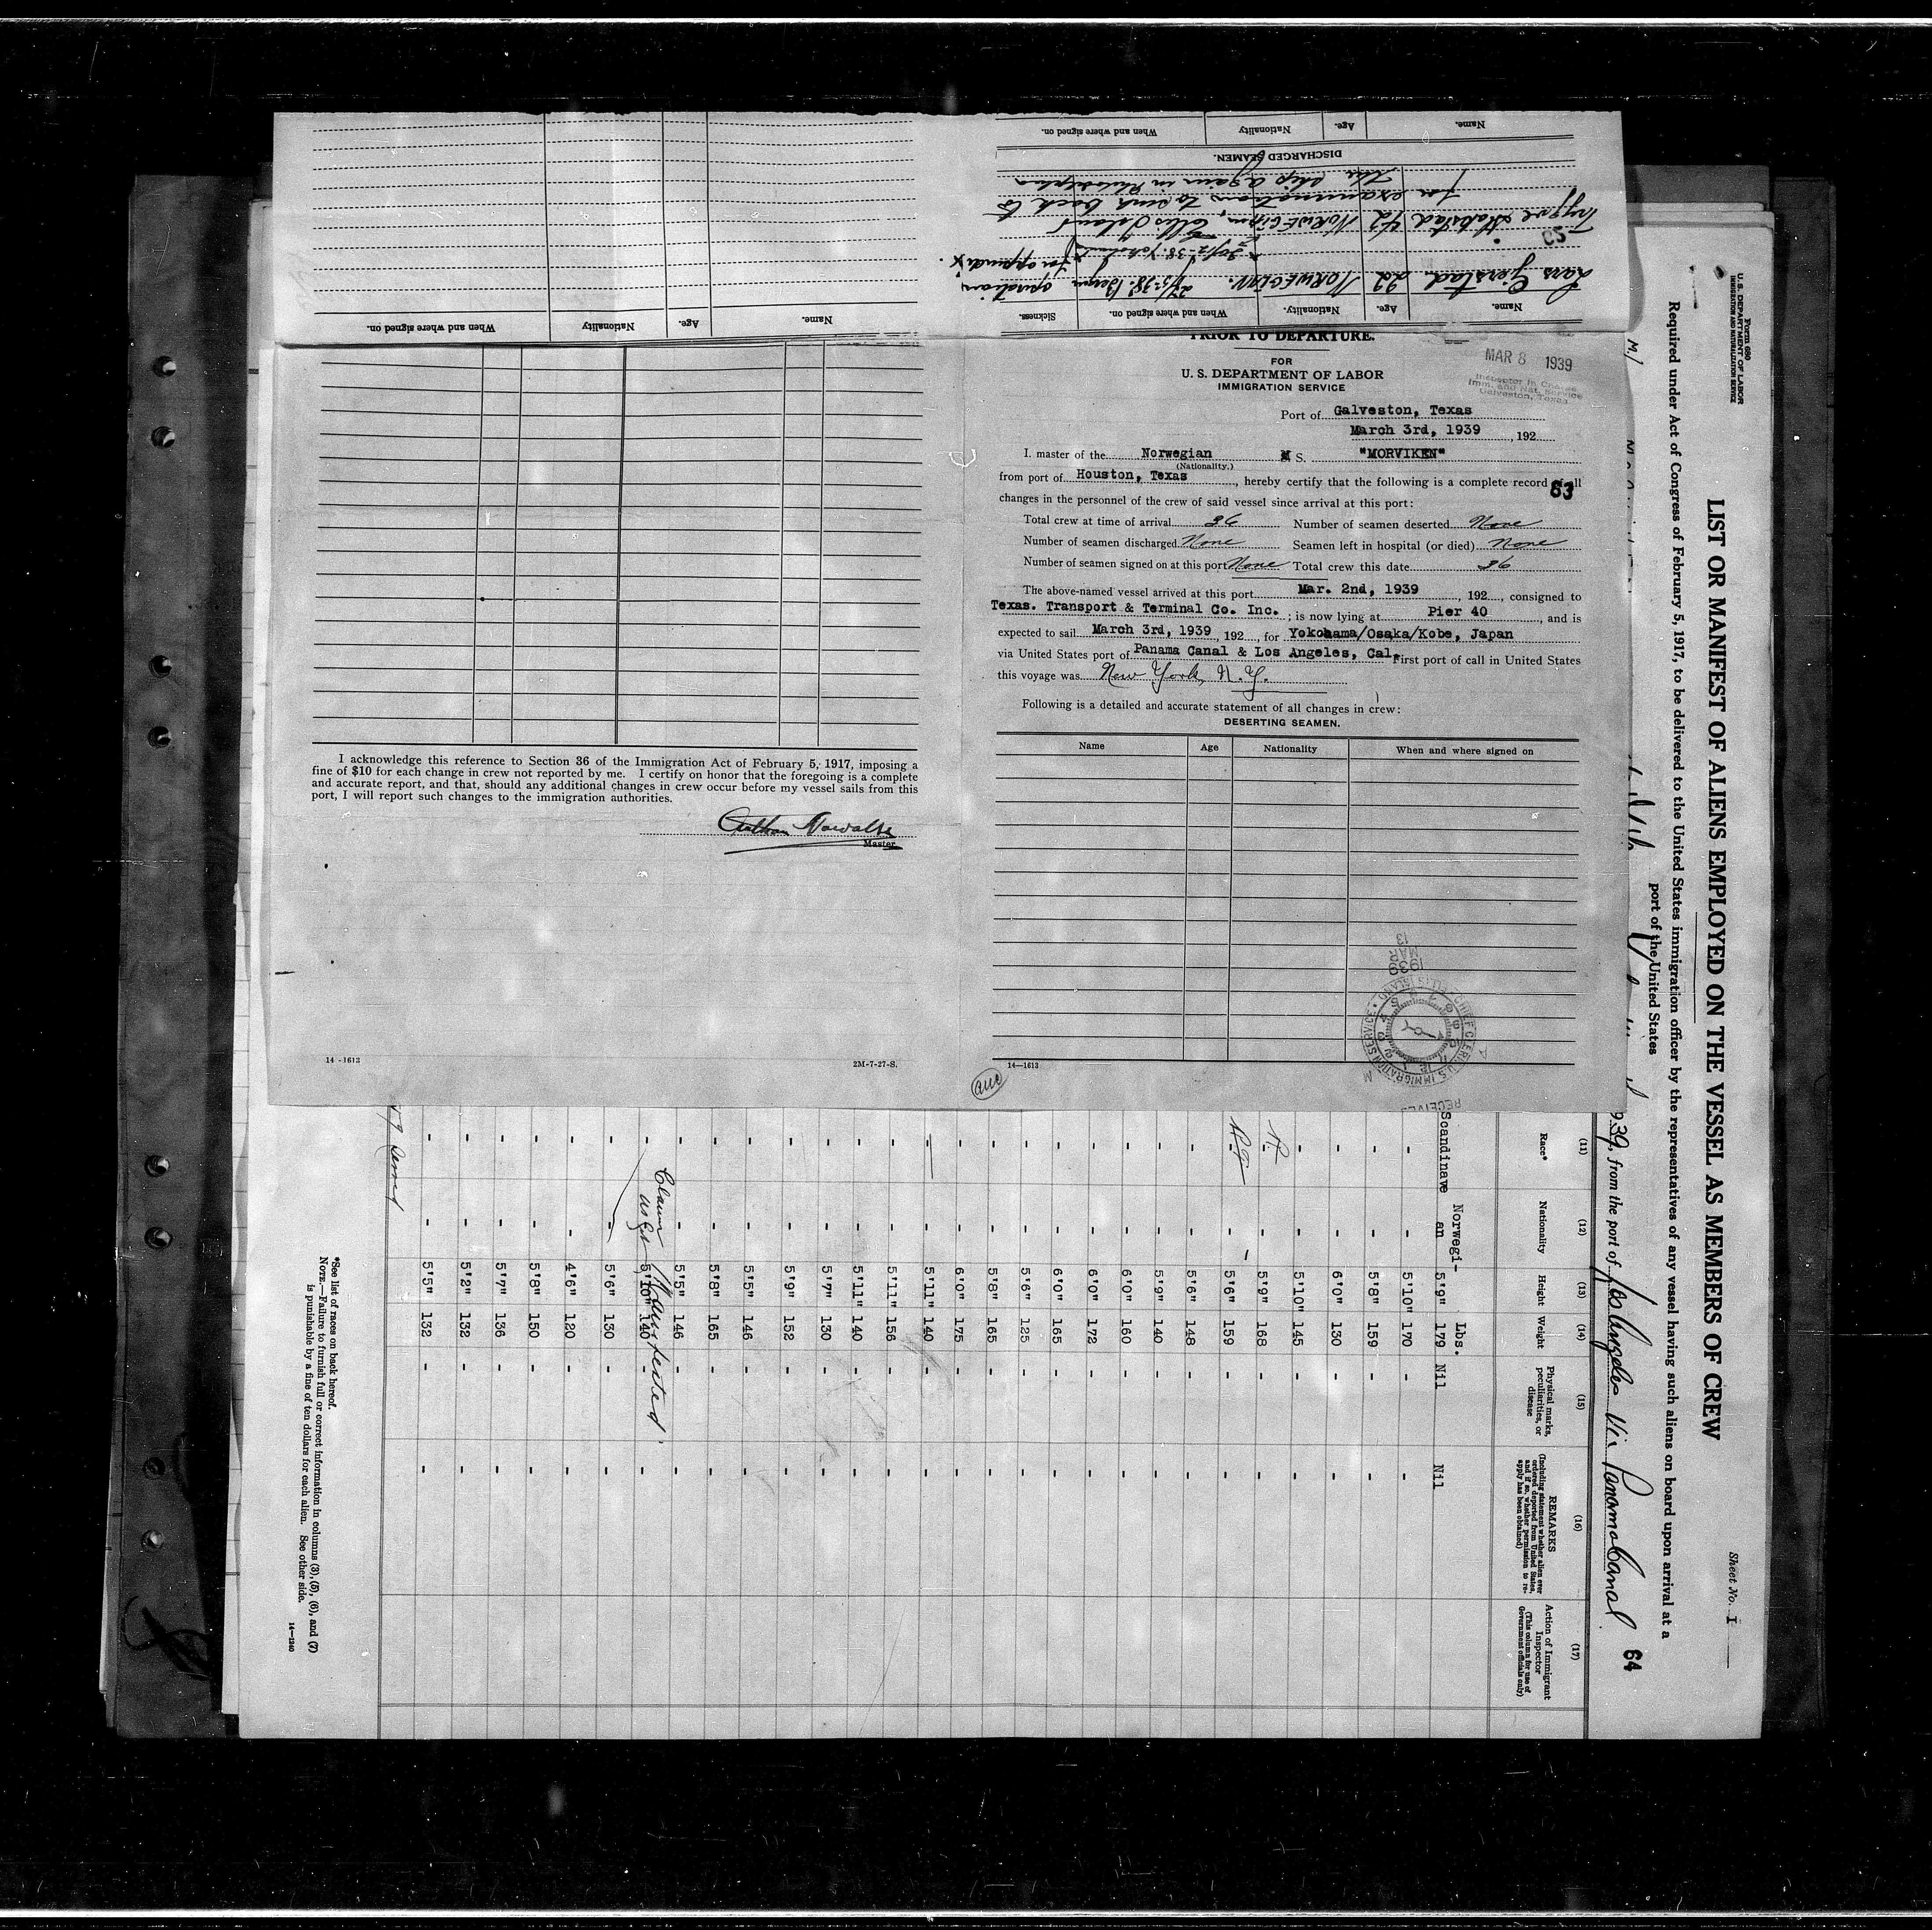 Name. Age. Nationality When and where signed on.
DISCHARGED SEAMEN.
this ship again in Philadelphia
for examination to sent back to
Trygve Hakstad 42 NORWEGIAN, Ellis Island
30/12-38. Yokohama
Lars Gjerstad. 22 NORWEGIAN. 27/5-38. Bergen operation,
Name. Age. Nationality. When and where signed on. Sickness.
Name. Age. Nationality When and where signed on.
PRIOR TO DEPARTURE.
MAR 8 1939
Inspector in Charge
Imm. and Nat. Service
Galveston, Texas
FOR
U. S. DEPARTMENT OF LABOR
IMMIGRATION SERVICE
Port of Galveston, Texas
March 3rd, 1939, 192
I. master of the Norwegian M S. "MORVIKEN"
(Nationality.)
from port of Houston, Texas, hereby certify that the following is a complete record of all
63
changes in the personnel of the crew of said vessel since arrival at this port:
Total crew at time of arrival 36 Number of seamen deserted None
Number of seamen discharged None Seamen left in hospital (or died) None
Number of seamen signed on at this port None Total crew this date 36
The above-named vessel arrived at this port Mar. 2nd, 1939, 192, consigned to
Texas. Transport & Terminal Co. Inc. ; is now lying at Pier 40, and is
expected to sail March 3rd, 1939, 192, for Yokohama/Osaka/Kobe, Japan
via United States port of Panama Canal & Los Angeles, Cal. First port of call in United States
this voyage was New York, N. Y.
Following is a detailed and accurate statement of all changes in crew:
DESERTING SEAMEN.
Name Age Nationality When and where signed on
1939
MAR
13
CHIEF CLERK U.S. IMMIGRATION SERVICE
ELLIS ISLAND
RECEIVED
14-1613
I acknowledge this reference to Section 36 of the Immigration Act of February 5, 1917, imposing a
fine of $10 for each change in crew not reported by me. I certify on honor that the foregoing is a complete
and accurate report, and that, should any additional changes in crew occur before my vessel sails from this
port, I will report such changes to the immigration authorities.
Master.
14-1613 2M-7-27-S.
Form 680
U. S. DEPARTMENT OF LABOR
IMMIGRATION AND NATURALIZATION SERVICE
Sheet No. I
LIST OR MANIFEST OF ALIENS EMPLOYED ON THE VESSEL AS MEMBERS OF CREW
Required under Act of Congress of February 5, 1917, to be delivered to the United States immigration officer by the representatives of any vessel having such aliens on board upon arrival at a
port of the United States
939, from the port of Los Angeles Via Panama Canal
64
(11) (12) (13) (14) (15) (16) (17)
Race* Nationality Height Weight Physical marks, peculiarities, or disease REMARKS (Including statement whether alien ever ordered deported from United States, and if so, whether permission to re-apply has been obtained) Action of Immigrant Inspector (This column for use of Government officials only)
Norwegi- Lbs.
Scandinave an 5'9" 179 Nil Nil
- - 5'10" 170 - -
- - 5'8" 159 - -
- - 6'0" 130 - -
- - 5'10" 145 - -
- - 5'9" 168 - -
- - 5'6" 159 - -
- - 5'6" 148 - -
- - 5'9" 140 - -
- - 6'0" 160 - -
- - 6'0" 172 - -
- - 6'0" 165 - -
- - 5'6" 125 - -
- - 5'8" 165 - -
- - 6'0" 175 - -
- - 5'11" 140 - -
- - 5'11" 156 - -
- - 5'11" 140 - -
- - 5'7" 130 - -
- - 5'9" 152 - -
- - 5'5" 146 - -
- - 5'8" 165 - -
- - 5'5" 146 - -
Manifested
- - 5'10" 140 - -
- - 5'6" 130 - -
- - 4'6" 120 - -
- - 5'8" 150 - -
- - 5'7" 136 - -
- - 5'2" 132 - -
- - 5'5" 132 - -
*See list of races on back hereof.
NOTE.—Failure to furnish full or correct information in columns (3), (5), (6), and (7)
is punishable by a fine of ten dollars for each alien. See other side.
14-1240